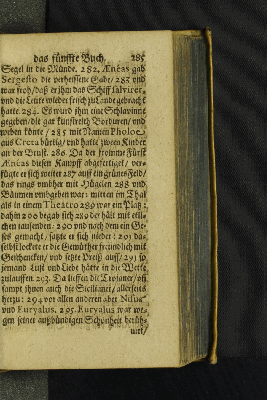 das fünffte Buch. 285
Segel in die Münde. 282. Æneas gab
Sergesto die verheissene Gabe/ 283 und
war froh/ daß er ihm das Schiff salviret/
und die Leute wieder frisch zu Lande gebracht
hatte. 284. Es wurd ihm eine Schlavinne
gegeben/ die gar künstreich Bordüren/ und
weben könte/ 285 mit Namen Pholoe,
aus Creta bürtig/ und hatte zween Kinder
an der Brust. 286. Da der fromme Fürst
Æneas diesen Kampff abgefertiget/ ver-
fügte er sich weiter 287 auff ein grünes Feld/
das rings umbher mit Hügelen 288 und
Bäumen umbgeben war: mitten im Thal
als in einem Theatro 289 war ein Platz/
dahin 200 begab sich der held mit etli-
chen tausenden: 290 und nach dem ein Ge-
ses gemacht/ satzte er sich nieder: 291 da-
selbst lockete er die Gemüther freundlich mit
Geschencken/ und setzte Preiß auff/ 291 so
jemand Lust und Liebe hätte in die Wette
zulauffen. 293. Da lieffen die Trojaner/ als
sampt ihnen auch die Sicilianer/ allerseits
herzu: 294 vor allen anderen aber Nisus
und Euryalus. 295. Euryalus war we-
gen seiner außbündigen Schönheit berüh-
met/